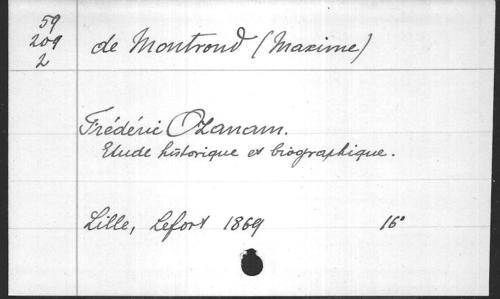 59
209
2
de Montrond (Maxime)
Frédéric Ozanam.
Etude historique et biographique.
Lille, Lefort 1869 16°